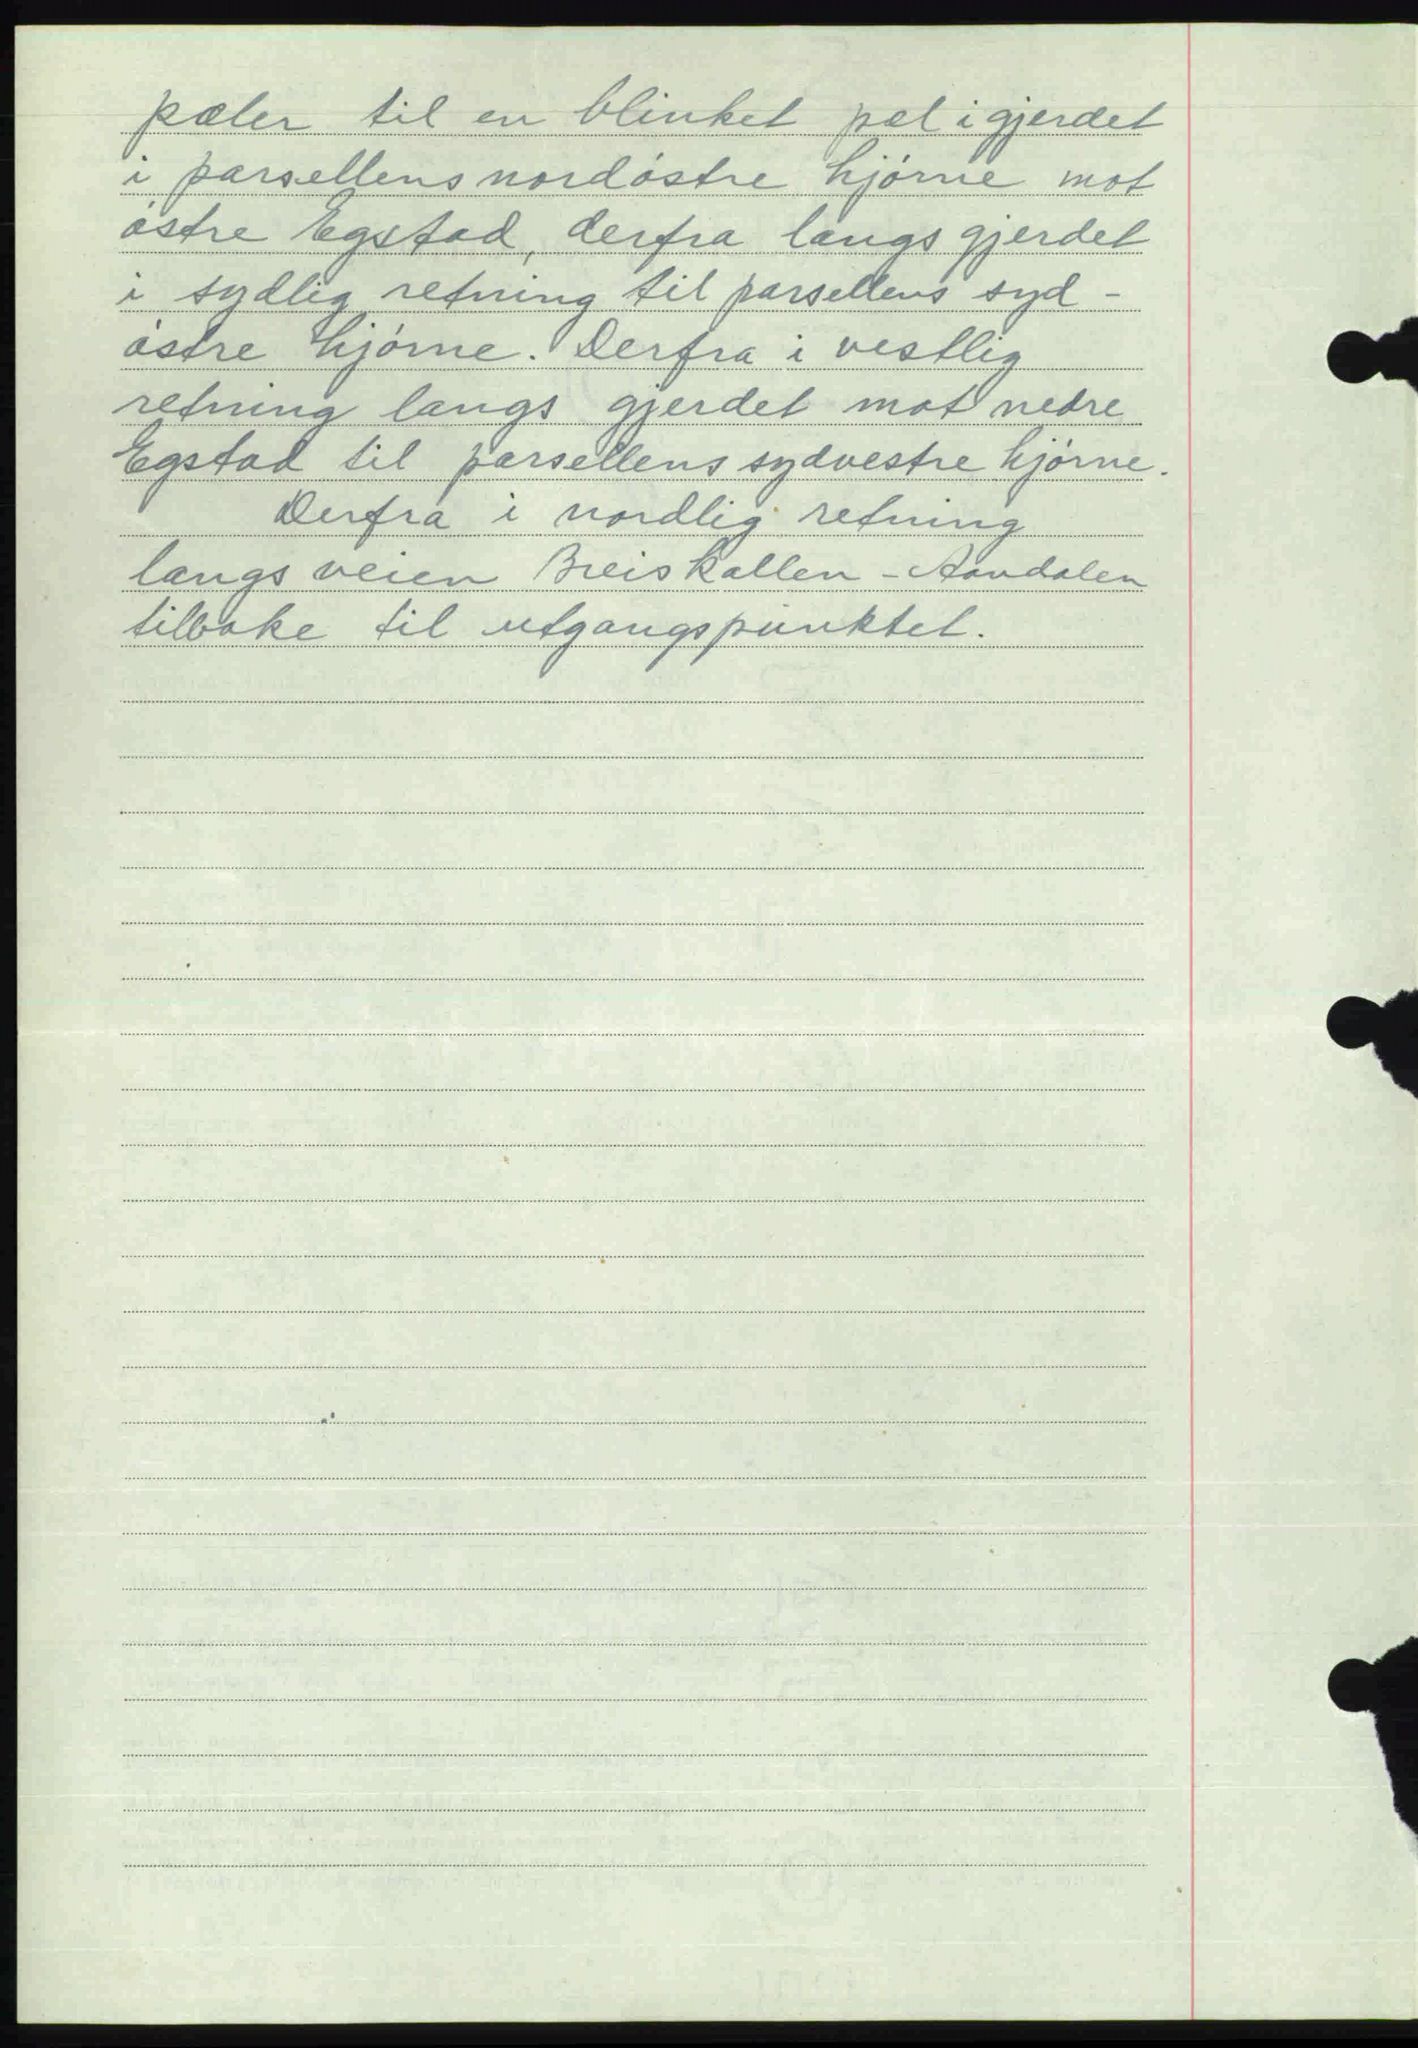 pæler til en blinket pæl i gjerdet
i parsellens nordóstre hjórne mot
óstre Egstad, derfra langs gjerdet
i sydlig retning til parsellens syd-
óstre hjórne. Derfra i vestlig
retning langs gjerdet mot nedre
Egstad til parsellens sydvestre hjórne.
Derfra i nordlig retning
langs veien Breiskallen - Aandalen
tilbake til utgangspunktet.